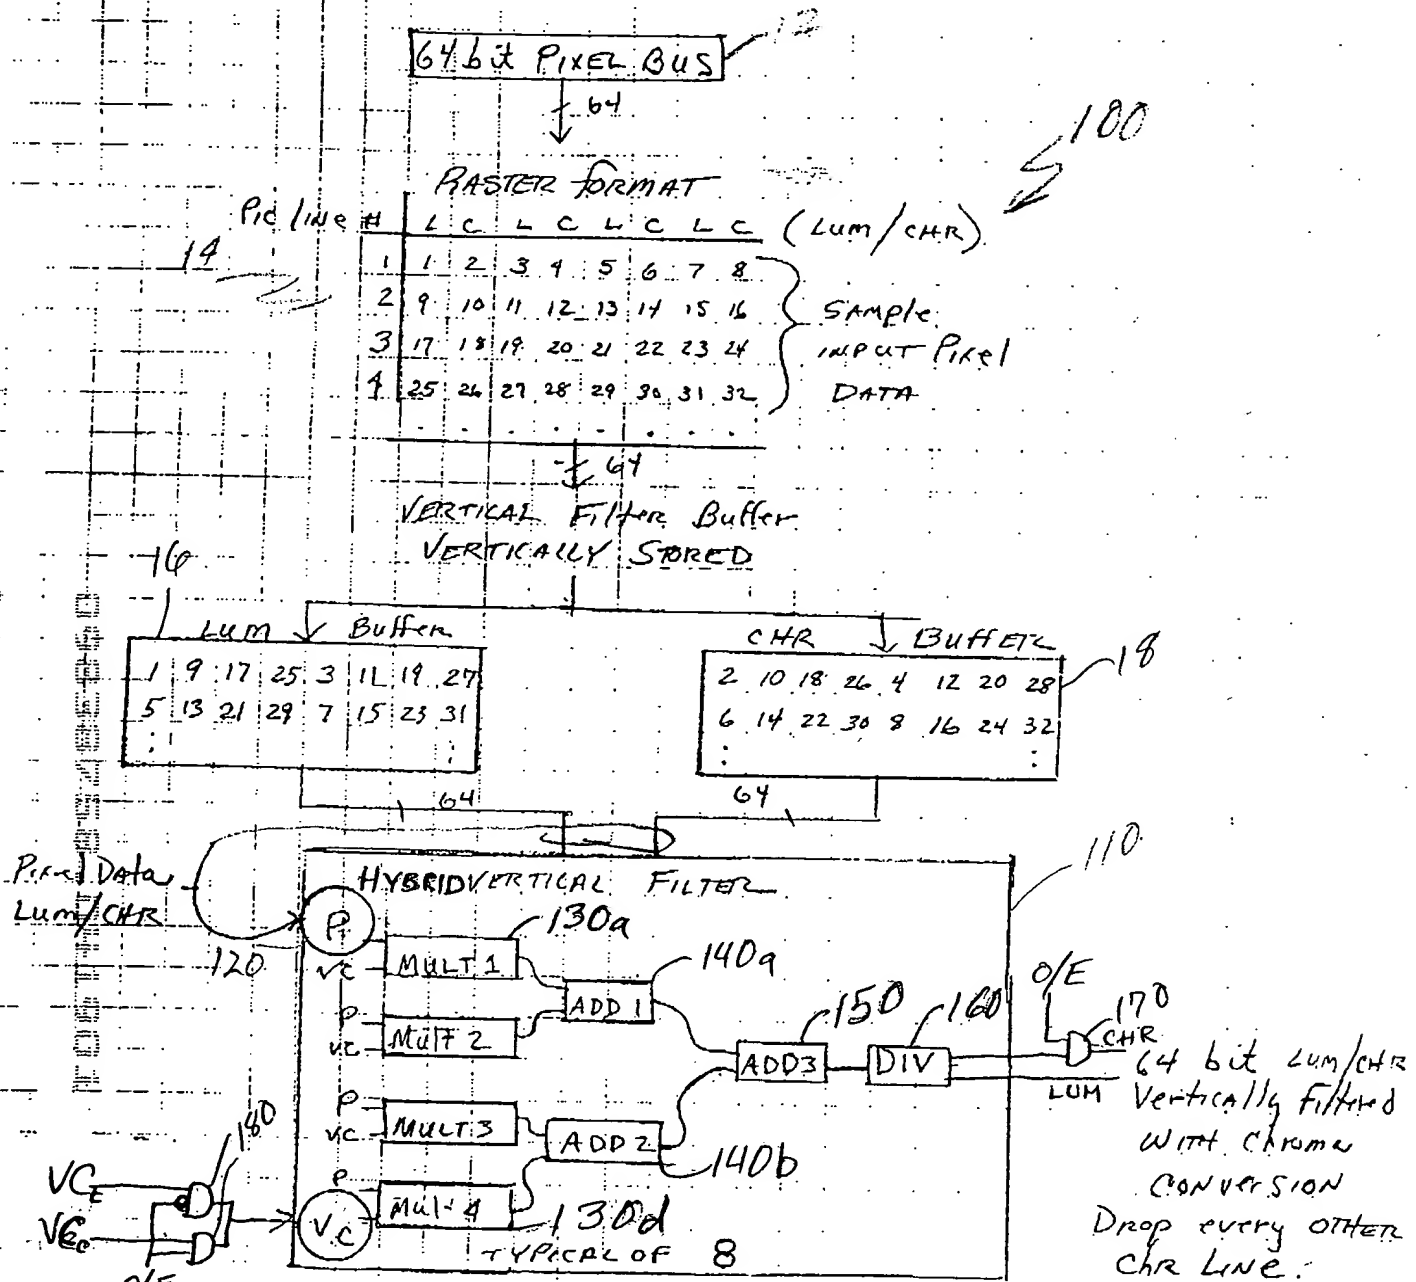 64 bit PIXEL BUS
12
64
100
RASTER FORMAT
Pic line # L C L C L C L C (LUM/CHR)
14
1 1 2 3 4 5 6 7 8
2 9 10 11 12 13 14 15 16
3 17 18 19 20 21 22 23 24
4 25 26 27 28 29 30 31 32
SAMPLE
INPUT Pixel
DATA
64
VERTICAL Filter Buffer
VERTICALLY STORED
16
LUM Buffer
1 9 17 25 3 11 19 27
5 13 21 29 7 15 23 31
CHR BUFFER
18
2 10 18 26 4 12 20 28
6 14 22 30 8 16 24 32
64
64
Pixel Data
Lum/CHR
120
HYBRID VERTICAL FILTER
110
P
130a
VC
MULT 1
140a
ADD 1
P
VC
Mult 2
P
VC
MULT 3
ADD 2
140b
P
Mult 4
130d
VC
TYPICAL OF 8
150
ADD3
160
DIV
O/E
170
CHR
LUM
64 bit LUM/CHR
Vertically Filtered
WITH Chroma
CONVERSION
Drop every OTHER
Chr LINE.
180
VCE
VCo
O/E